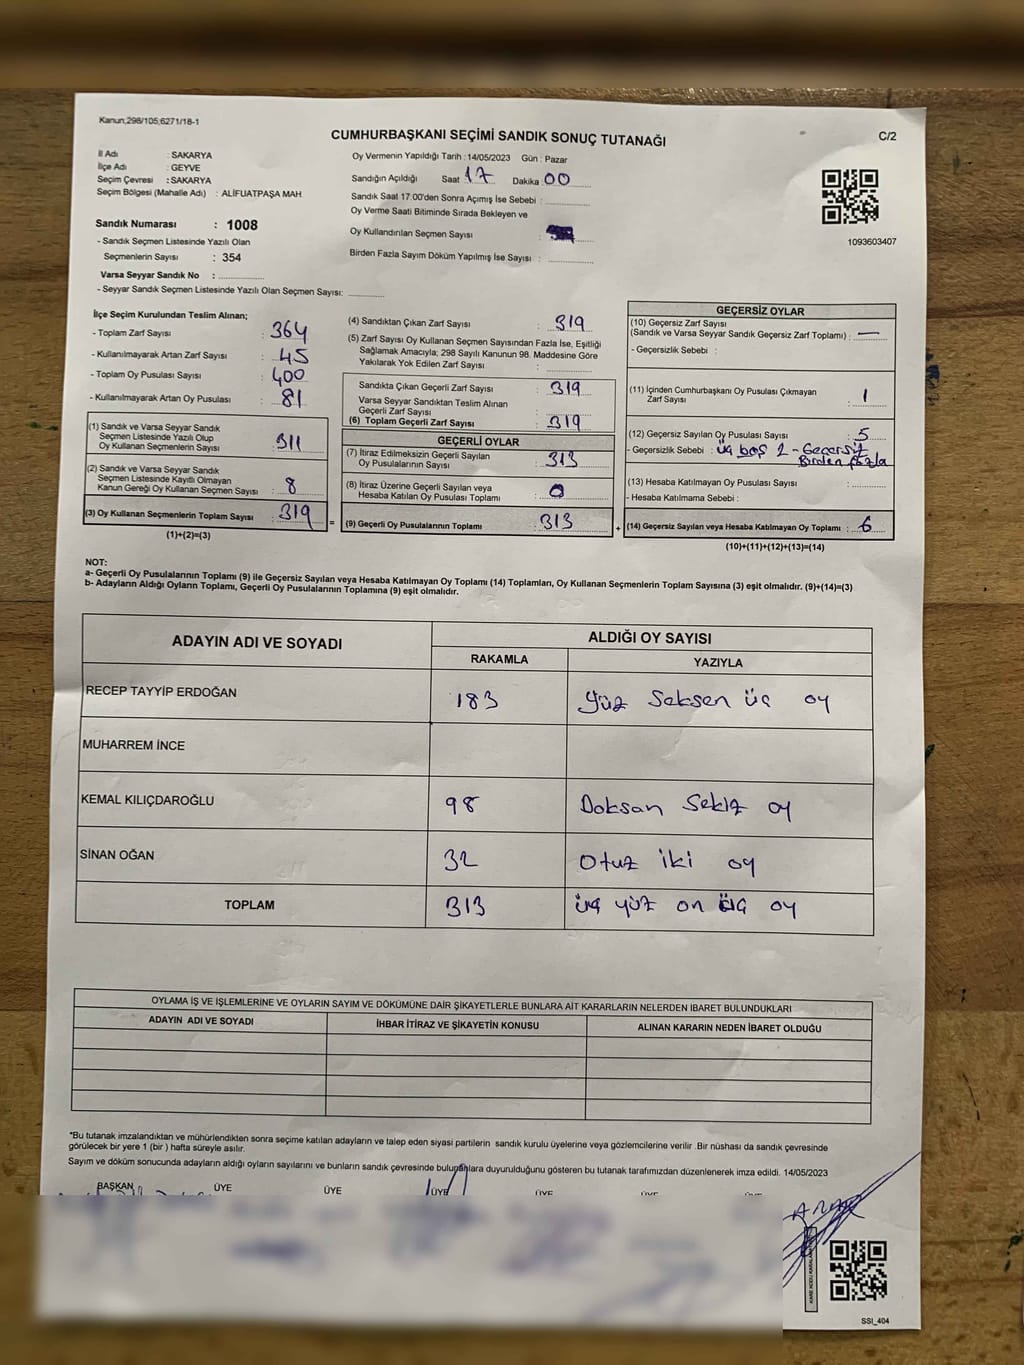 Kanun;298/105;6271/18-1
CUMHURBAŞKANI SEÇİMİ SANDIK SONUÇ TUTANAĞI
C/2
İl Adı : SAKARYA
İlçe Adı : GEYVE
Seçim Çevresi : SAKARYA
Seçim Bölgesi (Mahalle Adı) : ALİFUATPAŞA MAH.
Sandık Numarası : 1008
- Sandık Seçmen Listesinde Yazılı Olan
Seçmenlerin Sayısı : 354
Varsa Seyyar Sandık No :
- Seyyar Sandık Seçmen Listesinde Yazılı Olan Seçmen Sayısı:
Oy Vermenin Yapıldığı Tarih : 14/05/2023 Gün : Pazar
Sandığın Açıldığı Saat 17 Dakika 00
Sandık Saat 17.00'den Sonra Açımış İse Sebebi :
Oy Verme Saati Bitiminde Sırada Bekleyen ve
Oy Kullandırılan Seçmen Sayısı :
Birden Fazla Sayım Döküm Yapılmış İse Sayısı :
1093603407
İlçe Seçim Kurulundan Teslim Alınan;
- Toplam Zarf Sayısı : 364
- Kullanılmayarak Artan Zarf Sayısı : 45
- Toplam Oy Pusulası Sayısı : 400
- Kullanılmayarak Artan Oy Pusulası : 81
(1) Sandık ve Varsa Seyyar Sandık
Seçmen Listesinde Yazılı Olup
Oy Kullanan Seçmenlerin Sayısı : 311
(2) Sandık ve Varsa Seyyar Sandık
Seçmen Listesinde Kayıtlı Olmayan
Kanun Gereği Oy Kullanan Seçmen Sayısı : 8
(3) Oy Kullanan Seçmenlerin Toplam Sayısı : 319
(1)+(2)=(3)
(4) Sandıktan Çıkan Zarf Sayısı : 319
(5) Zarf Sayısı Oy Kullanan Seçmen Sayısından Fazla İse, Eşitliği
Sağlamak Amacıyla; 298 Sayılı Kanunun 98. Maddesine Göre
Yakılarak Yok Edilen Zarf Sayısı :
Sandıkta Çıkan Geçerli Zarf Sayısı : 319
Varsa Seyyar Sandıktan Teslim Alınan
Geçerli Zarf Sayısı :
(6) Toplam Geçerli Zarf Sayısı : 319
GEÇERLİ OYLAR
(7) İtiraz Edilmeksizin Geçerli Sayılan
Oy Pusulalarının Sayısı : 313
(8) İtiraz Üzerine Geçerli Sayılan veya
Hesaba Katılan Oy Pusulası Toplamı : 0
= (9) Geçerli Oy Pusulalarının Toplamı : 313
GEÇERSİZ OYLAR
(10) Geçersiz Zarf Sayısı
(Sandık ve Varsa Seyyar Sandık Geçersiz Zarf Toplamı) : —
- Geçersizlik Sebebi :
(11) İçinden Cumhurbaşkanı Oy Pusulası Çıkmayan
Zarf Sayısı : 1
(12) Geçersiz Sayılan Oy Pusulası Sayısı : 5
- Geçersizlik Sebebi : üç boş 2 - Geçersiz
Birden fazla
(13) Hesaba Katılmayan Oy Pusulası Sayısı :
- Hesaba Katılmama Sebebi :
+ (14) Geçersiz Sayılan veya Hesaba Katılmayan Oy Toplamı : 6
(10)+(11)+(12)+(13)=(14)
NOT:
a- Geçerli Oy Pusulalarının Toplamı (9) ile Geçersiz Sayılan veya Hesaba Katılmayan Oy Toplamı (14) Toplamları, Oy Kullanan Seçmenlerin Toplam Sayısına (3) eşit olmalıdır. (9)+(14)=(3)
b- Adayların Aldığı Oyların Toplamı, Geçerli Oy Pusulalarının Toplamına (9) eşit olmalıdır.
ADAYIN ADI VE SOYADI
ALDIĞI OY SAYISI
RAKAMLA YAZIYLA
RECEP TAYYİP ERDOĞAN 183 Yüz Seksen üç oy
MUHARREM İNCE
KEMAL KILIÇDAROĞLU 98 Doksan Sekiz oy
SİNAN OĞAN 32 Otuz iki oy
TOPLAM 313 üç yüz on üç oy
OYLAMA İŞ VE İŞLEMLERİNE VE OYLARIN SAYIM VE DÖKÜMÜNE DAİR ŞİKAYETLERLE BUNLARA AİT KARARLARIN NELERDEN İBARET BULUNDUKLARI
ADAYIN ADI VE SOYADI İHBAR İTİRAZ VE ŞİKAYETİN KONUSU ALINAN KARARIN NEDEN İBARET OLDUĞU
*Bu tutanak imzalandıktan ve mühürlendikten sonra seçime katılan adayların ve talep eden siyasi partilerin sandık kurulu üyelerine veya gözlemcilerine verilir .Bir nüshası da sandık çevresinde
görülecek bir yere 1 (bir ) hafta süreyle asılır.
Sayım ve döküm sonucunda adayların aldığı oyların sayılarını ve bunların sandık çevresinde bulunanlara duyurulduğunu gösteren bu tutanak tarafımızdan düzenlenerek imza edildi. 14/05/2023
BAŞKAN ÜYE ÜYE ÜYE ÜYE
SSI_404